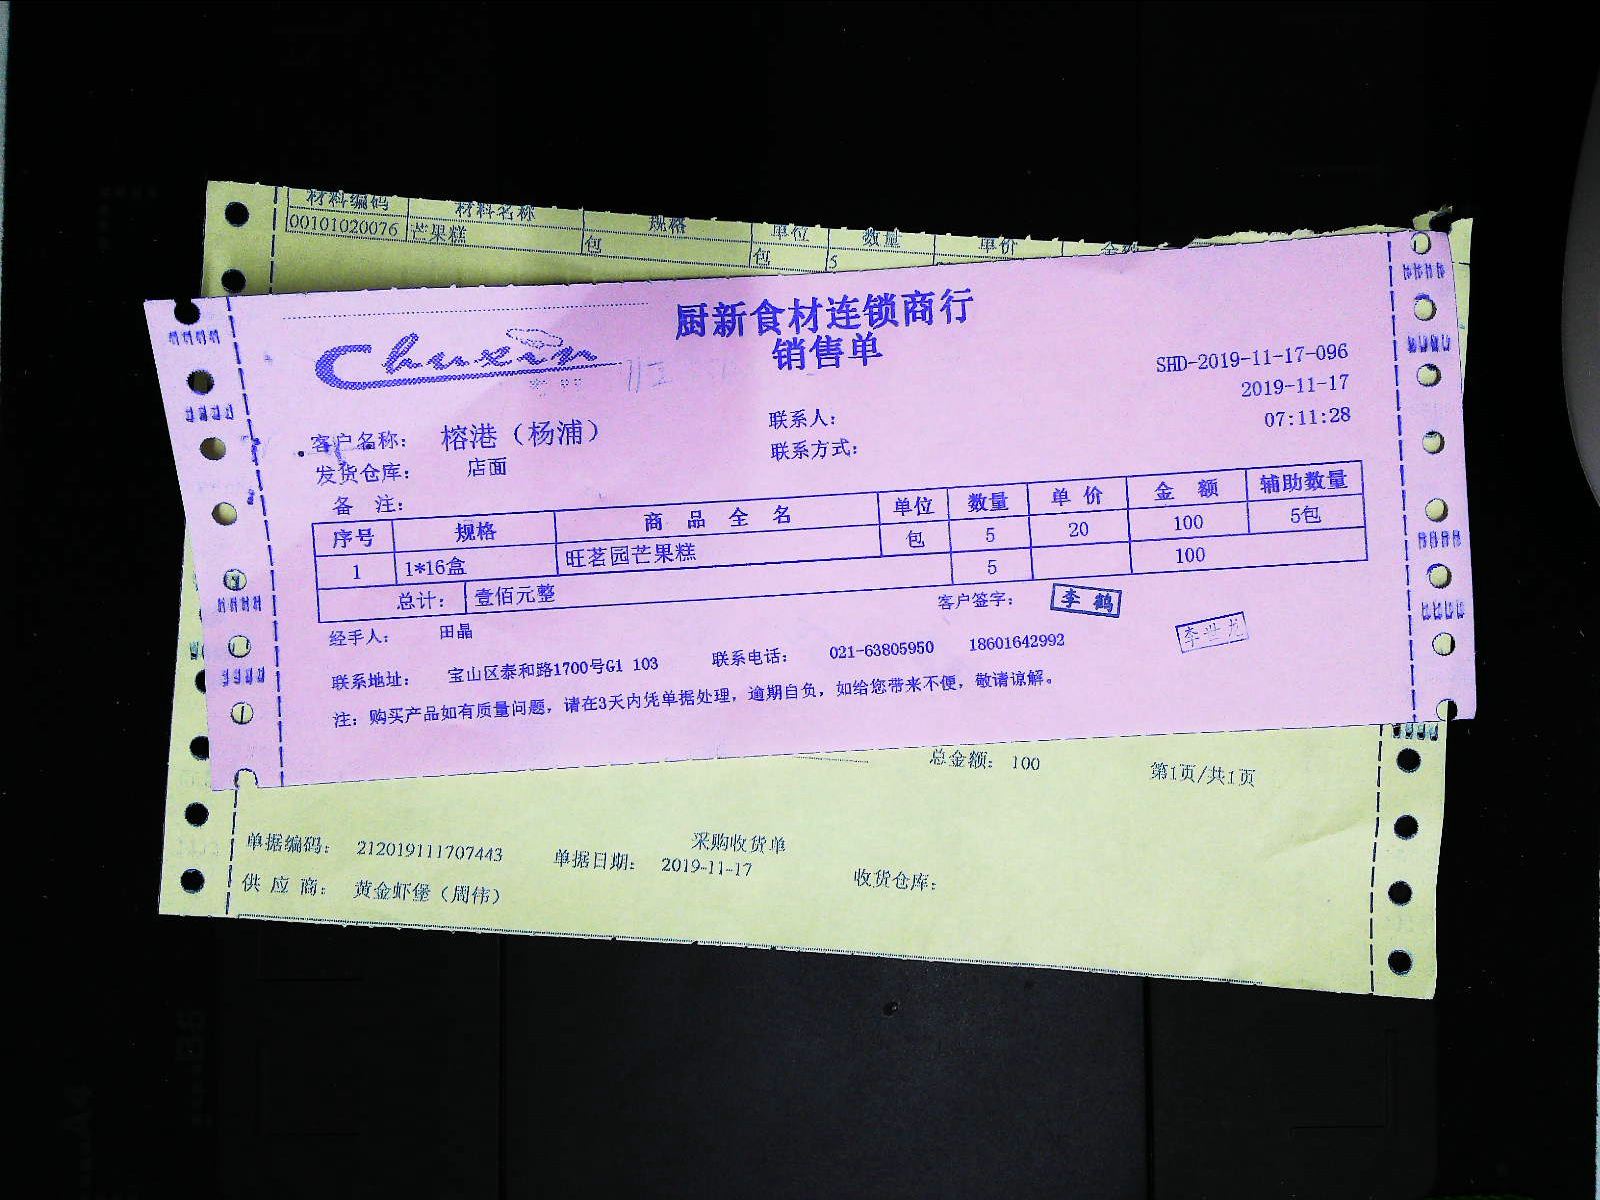 材料编码 材料名称 规格 单位 数量 单价
00101020076 芒果糕 包 包 5
Chuxin
厨新食材连锁商行
销售单
SHD-2019-11-17-096
2019-11-17
07:11:28
客户名称： 榕港（杨浦） 联系人：
发货仓库： 店面 联系方式：
备 注：
序号 规格 商 品 全 名 单位 数量 单 价 金 额 辅助数量
1 1*16盒 旺茗园芒果糕 包 5 20 100 5包
总计： 壹佰元整 5 100
经手人： 田晶 客户签字： 李鹤
李世龙
联系地址： 宝山区泰和路1700号G1 103 联系电话： 021-63805950 18601642992
注：购买产品如有质量问题，请在3天内凭单据处理，逾期自负，如给您带来不便，敬请谅解。
总金额：100 第1页/共1页
采购收货单
单据编码： 212019111707443 单据日期： 2019-11-17 收货仓库：
供 应 商： 黄金虾堡（周伟）